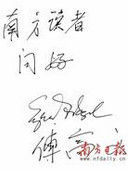 南方读者
问好
傅高义
南方日报
www.nfdaily.cn